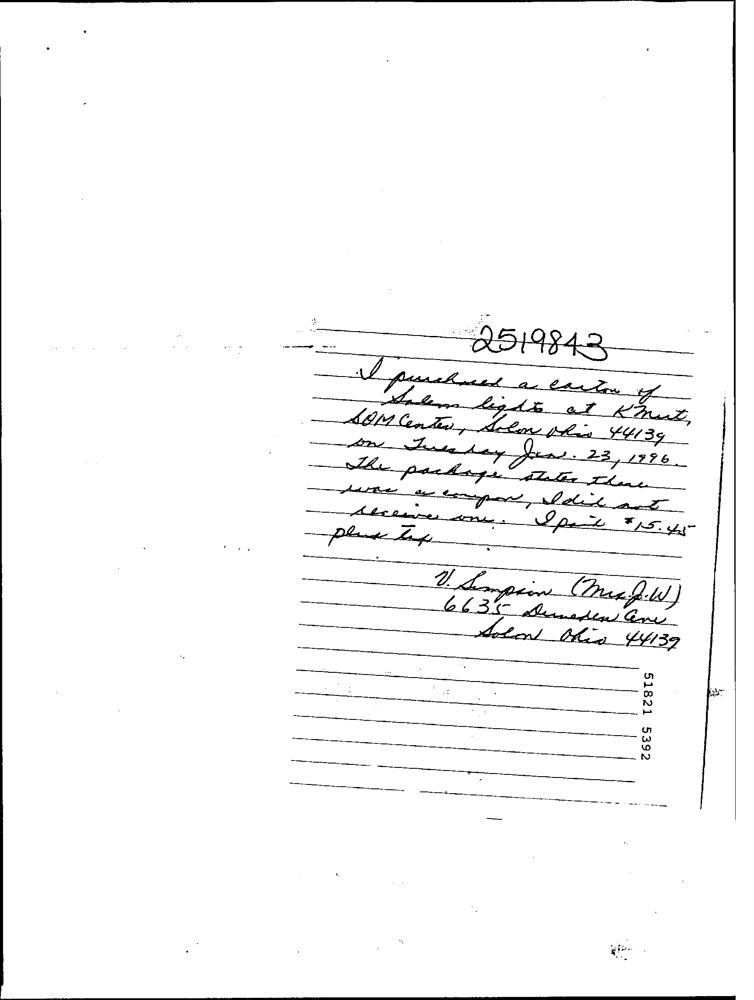 2519843
I purchased a carton of
Salem lights at K Mart,
SOM Center, Solon Ohio 44139
on Tuesday Jan. 23, 1996.
The package states there
was a coupon, I did not
receive one. I paid $15.45
plus tax
V. Simpson (Mrs J.W)
6635 Duneden Ave
Solon Ohio 44139
51821 5392